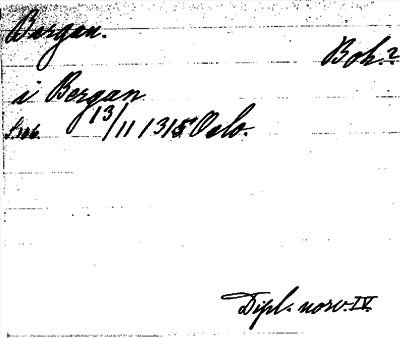 Bergan.
Boh.?
i Bergan
13/11 1315 Oslo.
Dipl. norv. IV.